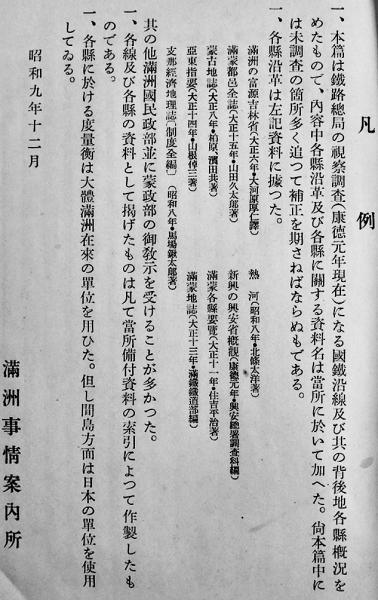 凡例
一、本篇は鐵路總局の視察調査(康德元年現在)になる國鐵沿線及び其の背後地各縣概況を
めたもので、內容中各縣沿革及び各縣に關する資料名は當所に於いて加へた。尙本篇中に
は未調査の箇所多く追つて補正を期さねばならぬものである。
一、各縣沿革は左記資料に據つた。
滿洲の富源吉林省(大正六年●大河原厚仁譯)
滿蒙都邑全誌(大正十五年●山田久太郞著)
蒙古地誌(大正八年●柏原、濱田共著)
亞東指要(大正十四年●山根倬三著)
支那經濟地理誌(制度全編)(昭和八年●馬場鍬太郞著)
熱河(昭和八年●北條太洋著)
新興の興安省槪觀(康德元年●興安總署調査科編)
滿蒙各縣要覽(大正十一年●住吉平治著)
滿蒙地誌(大正十三年●滿鐵鐵道部編)
其の他滿洲國民政部並に蒙政部の御敎示を受けることが多かつた。
一、各線及び各縣の資料として揭げたものは凡て當所備付資料の索引によつて作製したも
のである。
一、各縣に於ける度量衡は大體滿洲在來の單位を用ひた。但し間島方面は日本の單位を使用
してゐる。
昭和九年十二月
滿洲事情案內所